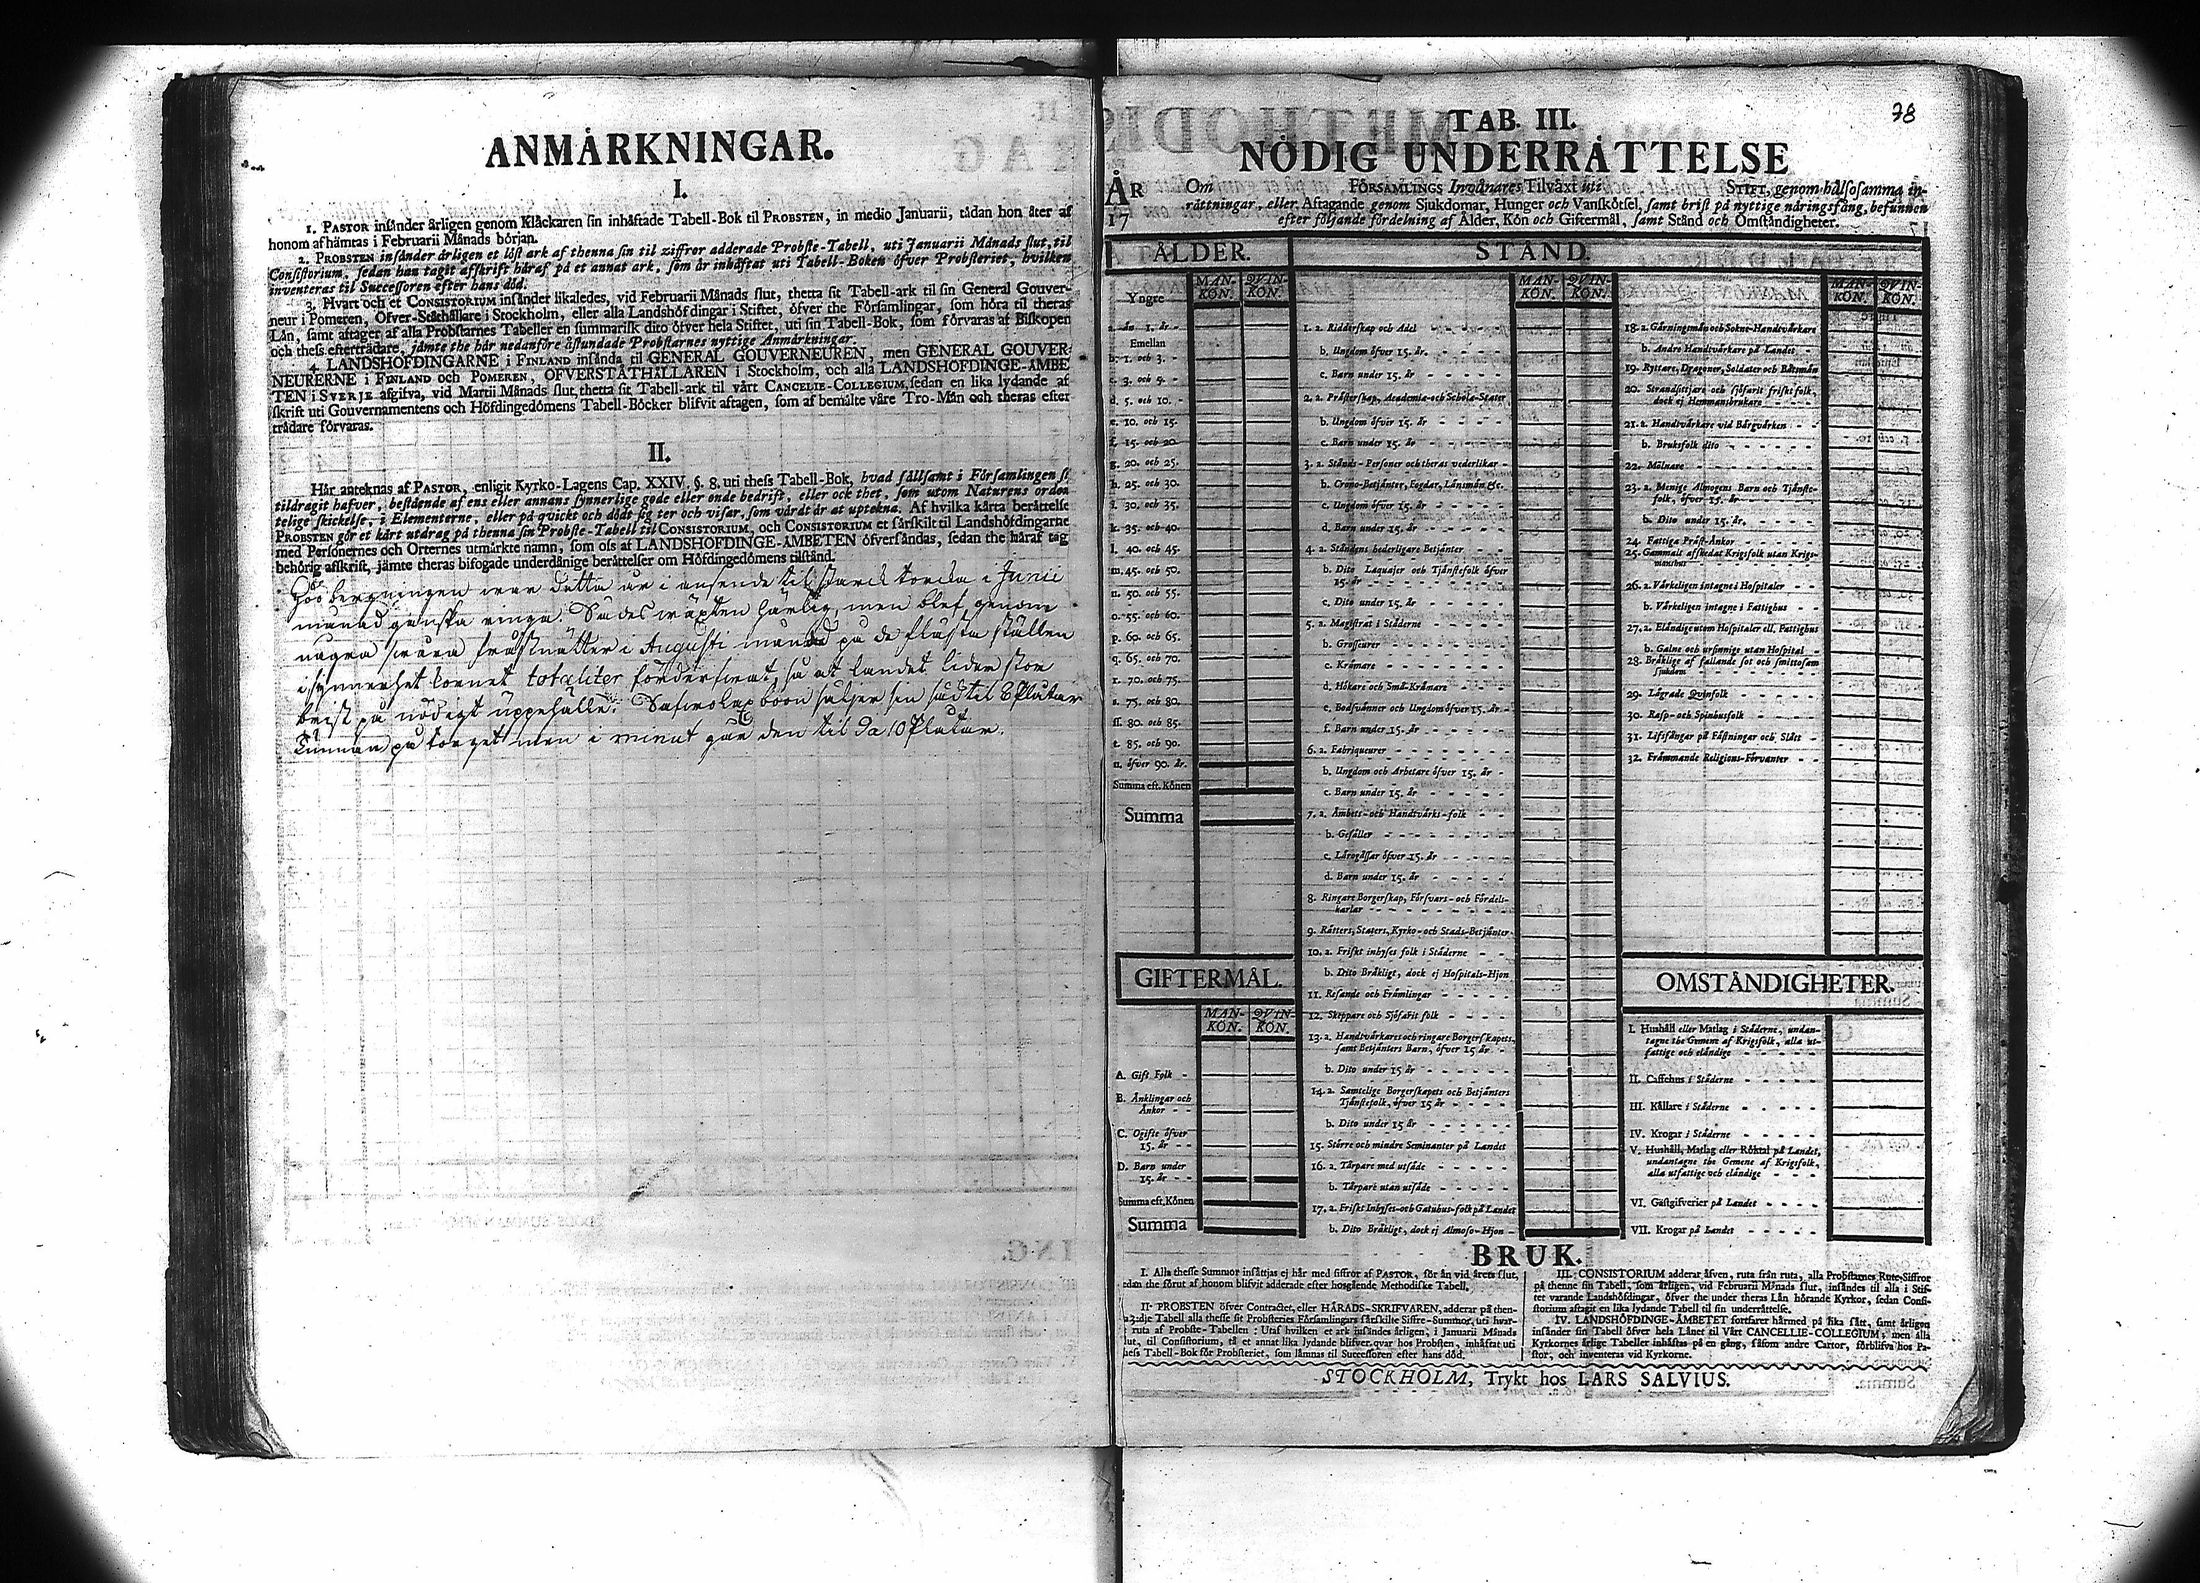 ANMÄRKNINGAR.
I.
1. PASTOR insänder årligen genom Klåckaren sin inhäftade Tabell-Bok til PROBSTEN, in medio Januarii, tädan hon åter af
honom afhämtas i Februarii Månads början.
2. PROBSTEN insänder årligen et löst ark af thenna sin til ziffror adderade Probste-Tabell, uti Januarii Månads slut, til
Consistorium, sedan han tagit afskrift häraf på et annat ark, som är inhäftat uti Tabell-Boken öfver Probsteriet, hvilken
inventeras til Successoren efter hans död.
3. Hvart och et CONSISTORIUM insänder likaledes, vid Februarii Månads slut, thetta sit Tabell-ark til sin General Gouver-
neur i Pomeren, Öfver-Ståthållare i Stockholm, eller alla Landshöfdingar i Stiftet, öfver the Församlingar, som höra til theras
Län, samt aftager af alla Probstarnes Tabeller en summarisk dito öfver hela Stiftet, uti sin Tabell-Bok, som förvaras af Biskopen
och thess efterträdare, jämte the här nedanföre åstundade Probstarnes nyttige Anmärkningar.
4. LANDSHÖFDINGARNE i FINLAND insända til GENERAL GOUVERNEUREN, men GENERAL GOUVER-
NEURERNE i FINLAND och POMEREN, ÖFVERSTÅTHÅLLAREN i Stockholm, och alla LANDSHÖFDINGE-ÄMBE
TEN i SVERJE afgifva, vid Martii Månads slut, thetta sit Tabell-ark til vårt CANCELIE-COLLEGIUM, sedan en lika lydande af
skrift uti Gouvernamentens och Höfdingedömens Tabell-Böcker blifvit aftagen, som af bemälte våre Tro-Män och theras efter
trädare förvaras.
II.
Här anteknas af PASTOR, enligit Kyrko-Lagens Cap. XXIV, §. 8. uti thess Tabell-Bok, hvad sällsamt i Församlingen sig
tildragit hafver, bestående af ens eller annans synnerlige gode eller onde bedrift, eller ock thet, som utom Naturens orden
telige skickelse, i Elementerne, eller på qvickt och dödt sig ter och visar, som värdt är at uptekna. Af hvilka kårta berättelse
PROBSTEN gör et kårt utdrag på thenna sin Probste-Tabell til CONSISTORIUM, och CONSISTORIUM et särskilt til Landshöfdingarne
med Personernes och Orternes utmärkte namn, som oss af LANDSHÖFDINGE-ÄMBETEN öfversändas, sedan the häraf tag
behörig afskrift, jämte theras bifogade underdånige berättelser om Höfdingedömens tilstånd.
Höö bergningen war detta år i anseende til starck torcka i Junii
månad ganska ringa. Sädes wäxten härlig, men blef genom
några swåra frostnätter i Augusti månad på de flästa ställen
i synnerhet kornet totaliter förderfwat, så at landet lider stor
brist på nödigt uppehälle. boon säljer sin säd til 6 Platar
Tunnan på torget men i minut går den til 9 a 10 Platar.
78
TAB. III.
NÖDIG UNDERRÄTTELSE
ÅR Om FÖRSAMLINGS Invånares Tilväxt uti STIFT, genom hälsosamma in-
17 rättningar, eller Aftagande genom Sjukdomar, Hunger och Vanskötsel, samt brist på nyttige näringsfång, befunnen
efter följande fördelning af Ålder, Kön och Giftermål, samt Stånd och Omständigheter.
ÅLDER.
MAN-KÖN. QVIN-KÖN.
Yngre
a. än 1. år -
Emellan
b. 1. och 3. -
c. 3. och 5. -
d. 5. och 10. -
e. 10. och 15.
f. 15. och 20.
g. 20. och 25.
h. 25. och 30.
i. 30. och 35.
k. 35. och 40.
l. 40. och 45.
m. 45. och 50.
n. 50. och 55.
o. 55. och 60.
p. 60. och 65.
q. 65. och 70.
r. 70. och 75.
s. 75. och 80.
ſſ. 80. och 85.
t. 85. och 90.
u. öfver 90. år.
Summa eft. Könen
Summa
GIFTERMÅL.
MAN-KÖN. QVIN-KÖN.
A. Gift Folk -
B. Änklingar och
Änkor - -
C. Ogifte öfver
15. år - -
D. Barn under
15. år - -
Summa eft. Könen
Summa
STÅND.
MAN-KÖN. QVIN-KÖN.
1. a. Ridderskap och Adel
b. Ungdom öfver 15. år.
c. Barn under 15. år
2. a. Prästerskap, Academiæ-och Schola-Stater
b. Ungdom öfver 15. år
c. Barn under 15. år
3. a. Stånds-Personer och theras vederlikar -
b. Crono-Betjänter, Fogdar, Länsmän &c.
c. Ungdom öfver 15. år
d. Barn under 15. år
4. a. Ståndens hederligare Betjänter
b. Dito Laquajer och Tjänstefolk öfver
15. år
c. Dito under 15. år
5. a. Magistrat i Städerne
b. Grosseurer
c. Krämare
d. Hökare och Små-Krämare
e. Bodsvänner och Ungdom öfver 15. år -
f. Barn under 15. år
6. a. Fabriqueurer
b. Ungdom och Arbetare öfver 15. år
c. Barn under 15. år
7. a. Ämbets-och Handtvärks-folk
b. Gesäller
c. Lärogässar öfver 15. år
d. Barn under 15. år
8. Ringare Borgerskap, Försvars-och Fördels-
karlar
9. Rätters, Staters, Kyrko-och Stads-Betjänter
10. a. Friskt inhyses folk i Städerne
b. Dito Bräkligt, dock ej Hospitals-Hjon
11. Resande och Främlingar
12. Skeppare och Sjöfarit folk
13. a. Handtvärkares och ringare Borgerskapets,
samt Betjänters Barn, öfver 15 år
b. Dito under 15 år
14. a. Samtelige Borgerskapets och Betjänters
Tjänstefolk, öfver 15 år
b. Dito under 15 år
15. Större och mindre Seminanter på Landet
16. a. Tårpare med utsäde
b. Tårpare utan utsäde
17. a. Friskt Inhyses-och Gatuhus-folk på Landet
b. Dito Bräkligt, dock ej Almoso-Hjon
MAN-KÖN. QVIN-KÖN.
18. a. Gärningsmän och Sokne-Handtvärkare
b. Andre Handtvärkare på Landet
19. Ryttare, Dragoner, Soldater och Båtsmän
20. Strandsittjare och sjöfarit friskt folk,
dock ej Hemmansbrukare
21. a. Handtvärkare vid Bärgvärken
b. Bruksfolk dito
22. Mölnare
23. a. Menige Almogens Barn och Tjänste-
folk, öfver 15. år
b. Dito under 15. år.
24. Fattiga Präst-Änkor
25. Gammalt afskedat Krigsfolk utan Krigs-
manshus
26. a. Värkeligen intagne i Hospitaler
b. Värkeligen intagne i Fattighus
27. a. Eländige utom Hospitaler ell. Fattighus
b. Galne och ursinnige utan Hospital
28. Bräklige af fallande sot och smittosam
sjukdom
29. Lägrade Qvinfolk
30. Rasp-och Spinhusfolk
31. Lifsfångar på Fästningar och Slått
32. Främmande Religions-Förvanter
OMSTÄNDIGHETER.
I. Hushåll eller Matlag i Städerne, undan-
tagne the Gemene af Krigsfolk, alla ut-
fattige och eländige
II. Caffehus i Städerne
III. Källare i Städerne
IV. Krogar i Städerne
V. Hushåll, Matlag eller Röktal på Landet,
undantagne the Gemene af Krigsfolk,
alla utfattige och eländige
VI. Gästgifverier på Landet
VII. Krogar på Landet
BRUK.
I. Alla thesse Summor insättjas ej här med siffror af PASTOR, för än vid årets slut,
sedan the förut af honom blifvit adderade efter hosgående Methodiske Tabell.
II. PROBSTEN öfver Contractet, eller HÄRADS-SKRIFVAREN, adderar på then-
na 3:dje Tabell alla thesse sit Probsteries Församlingars särskilte Siffre-Summor, uti hvar-
ruta af Probste-Tabellen: Utaf hvilken et ark insändes årligen, i Januarii Månads
slut, til Consistorium, tå et annat lika lydande blifver qvar hos Probsten, inhäftat uti
thess Tabell-Bok för Probsteriet, som lämnas til Successoren efter hans död.
III. CONSISTORIUM adderar äfven, ruta från ruta, alla Probstarnes Rute-Siffror
på thenne sin Tabell, som årligen, vid Februarii Månads slut, insändes til alla i Stif-
tet varande Landshöfdingar, öfver the under theras Län hörande Kyrkor, sedan Consi-
storium aftagit en lika lydande Tabell til sin underrättelse.
IV. LANDSHÖFDINGE-ÄMBETET fortfarer härmed på lika sätt, samt årligen
insänder sin Tabell öfver hela Länet til Vårt CANCELLIE-COLLEGIUM; men alla
Kyrkornes årlige Tabeller inhäftas på en gång, såsom andre Cartor, förblifva hos Pa-
stor, och inventeras vid Kyrkorne.
STOCKHOLM, Trykt hos LARS SALVIUS.